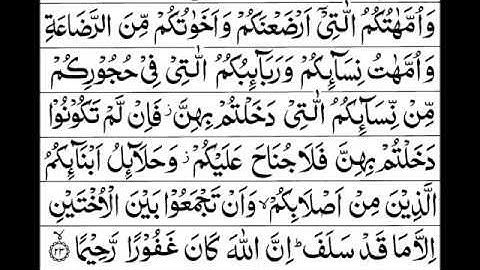 وَاُمَّهٰتُكُمُ الّٰتِیْۤ اَرْضَعْنَكُمْ وَاَخَوٰتُكُمْ مِّنَ الرَّضَاعَةِ
وَاُمَّهٰتُ نِسَآىِٕكُمْ وَرَبَآىِٕبُكُمُ الّٰتِیْ فِیْ حُجُوْرِكُمْ
مِّنْ نِّسَآىِٕكُمُ الّٰتِیْ دَخَلْتُمْ بِهِنَّ ؗ فَاِنْ لَّمْ تَكُوْنُوْا
دَخَلْتُمْ بِهِنَّ فَلَا جُنَاحَ عَلَیْكُمْ ؗ وَحَلَآىِٕلُ اَبْنَآىِٕكُمُ
الَّذِیْنَ مِنْ اَصْلَابِكُمْ ۙ وَاَنْ تَجْمَعُوْا بَیْنَ الْاُخْتَیْنِ
اِلَّا مَا قَدْ سَلَفَ ؕ اِنَّ اللّٰهَ كَانَ غَفُوْرًا رَّحِیْمًا ۙ۝۲۳